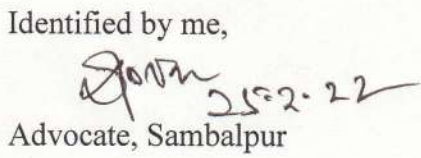 Identified by me,
25-2-22
Advocate, Sambalpur